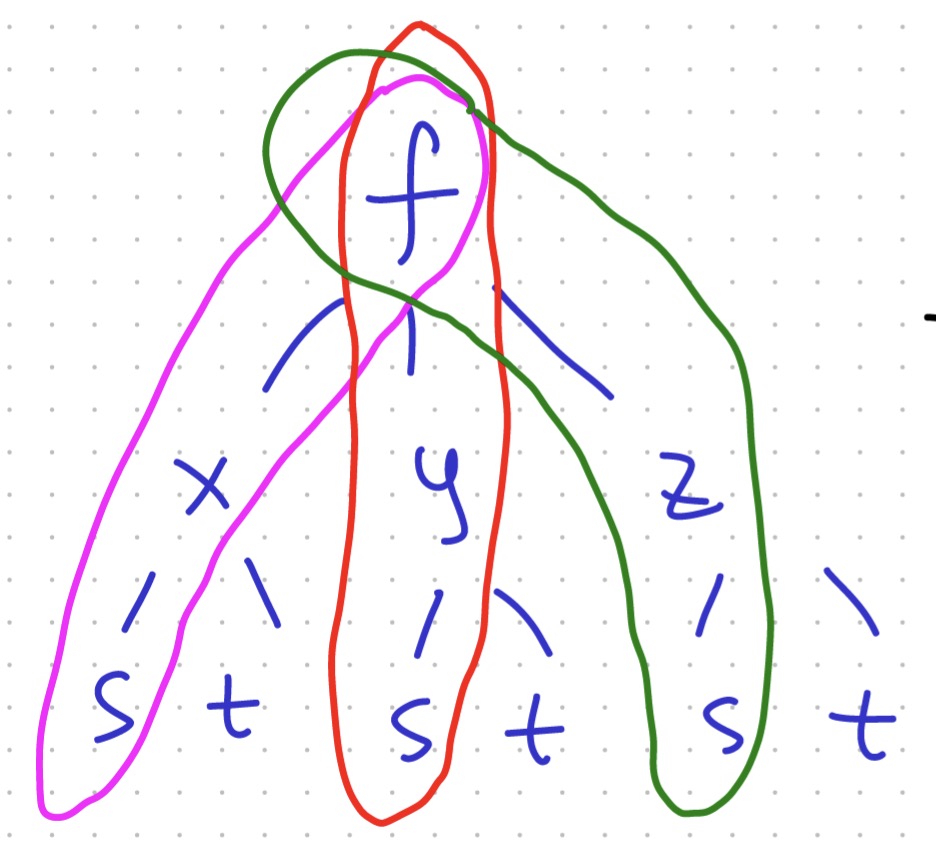 f
x y z
s t s t s t